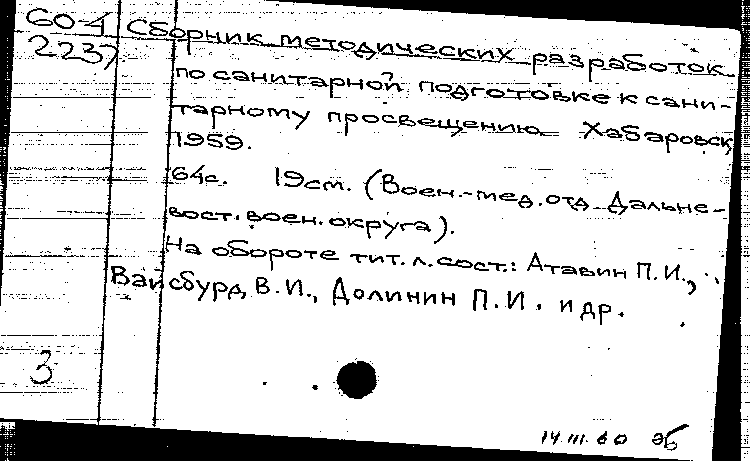 60-4 Сборник методических разработок
2237
по санитарной подготовке и сани-
тарному просвещению. Хабаровск,
1959.
64с. 19см. (Воен.-мед. отд. Дальне-
вост. воен. округа).
На обороте тит. л. сост.: Атавин П.И.,
Вайсбурд В.И., Долинин П.И. и др.
3
14.III.60